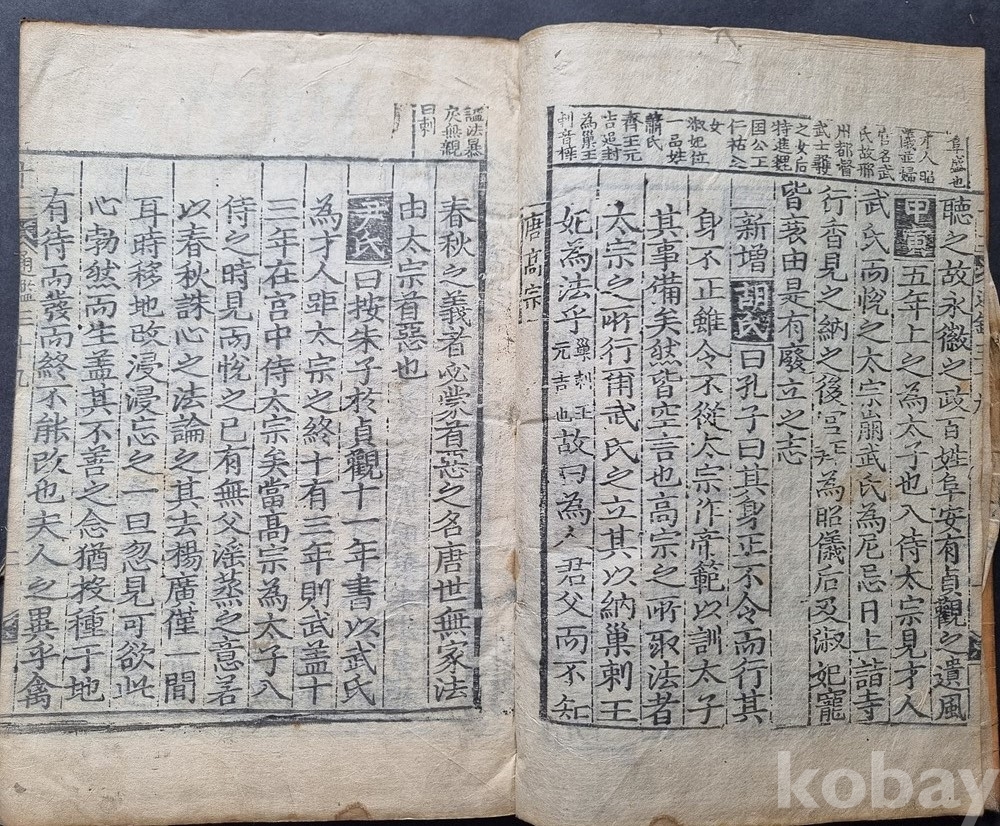 阜盛也
才人昭
儀並婦
官名武
氏故荊
州都督
武士彠
之女后
特進魏
國公王
仁祐之
女
淑妃位
一品姓
蕭氏
齊王元
吉追封
為巢王
刺音
聽之故永徽之政百姓阜安有貞觀之遺風
甲寅五年上之為太子也入侍太宗見才人
武氏而悅之太宗崩武氏為尼忌日上詣寺
行香見之納之後宮拜為昭儀后及淑妃寵
皆衰由是有廢立之志
新增胡氏曰孔子曰其身正不令而行其
身不正雖令不從太宗作帝範以訓太子
其事備矣然皆空言也高宗之所取法者
太宗之所行爾武氏之立其以納巢刺王
妃為法乎巢刺王元吉也故曰為人君父而不知
唐高宗
謚法暴
戾無親
曰刺
春秋之義者必蒙首惡之名唐世無家法
由太宗首惡也
尹氏曰按朱子於貞觀十一年書以武氏
為才人距太宗之終十有三年則武盖十
三年在宮中侍太宗矣當高宗為太子入
侍之時見而悅之已有無父滛蒸之意若
以春秋誅心之法論之其去楊廣僅一間
耳時移地改浸浸忘之一日忽見可欲此
心勃然而生盖其不善之念猶投種于地
有待而發而終不能改也夫人之異乎禽
通鑑三十九
kobay